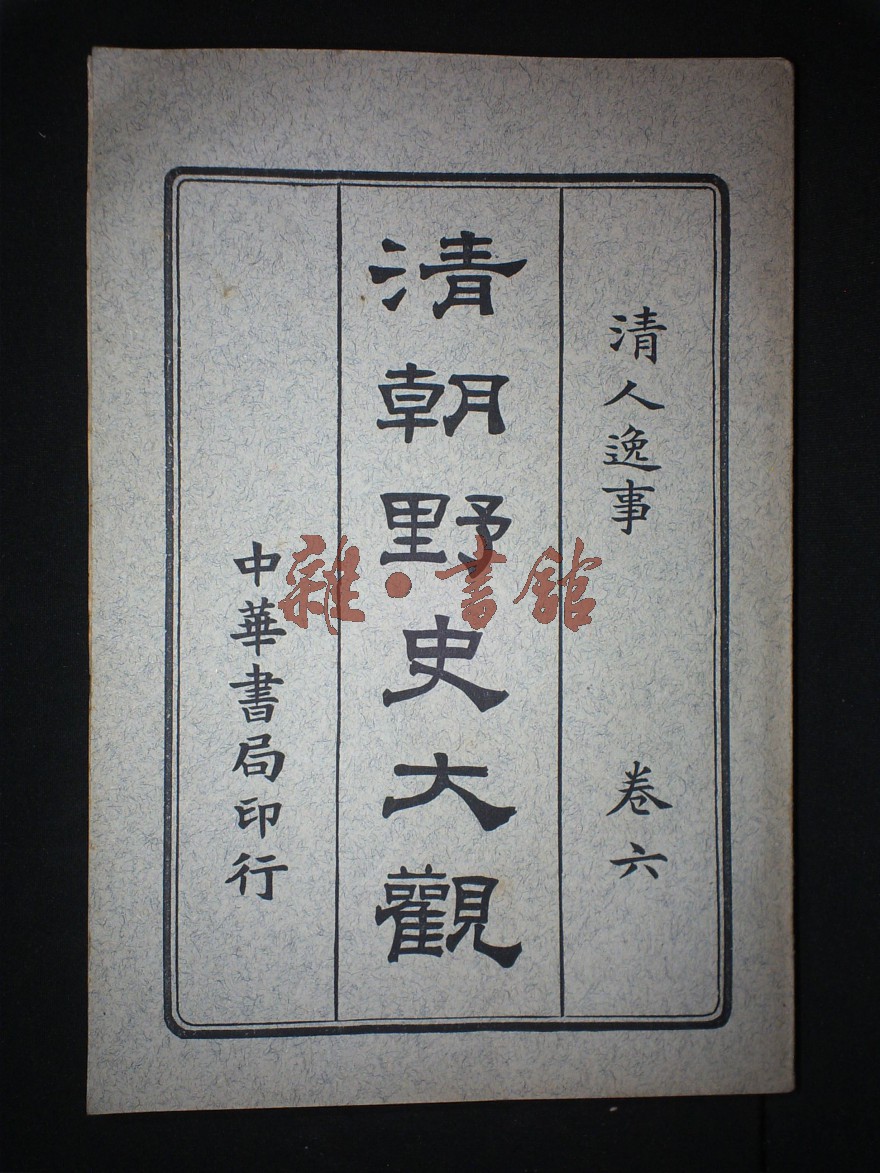 清人逸事 卷六
清朝野史大觀
中華書局印行
雜·書館